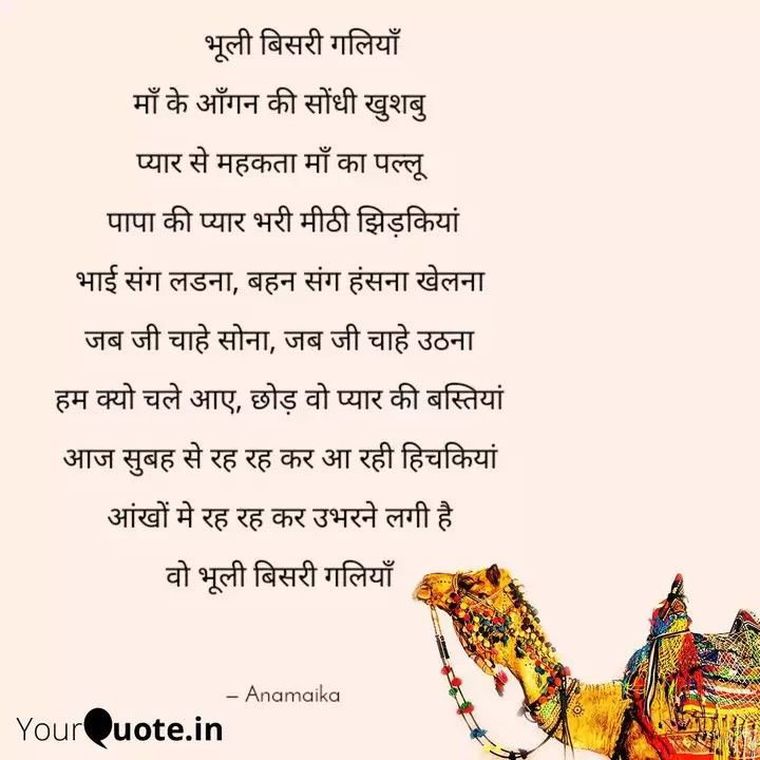 भूली बिसरी गलियाँ
माँ के आँगन की सोंधी खुशबु
प्यार से महकता माँ का पल्लू
पापा की प्यार भरी मीठी झिड़कियां
भाई संग लडना, बहन संग हंसना खेलना
जब जी चाहे सोना, जब जी चाहे उठना
हम क्यो चले आए, छोड़ वो प्यार की बस्तियां
आज सुबह से रह रह कर आ रही हिचकियां
आंखों मे रह रह कर उभरने लगी है
वो भूली बिसरी गलियाँ
– Anamaika
YourQuote.in